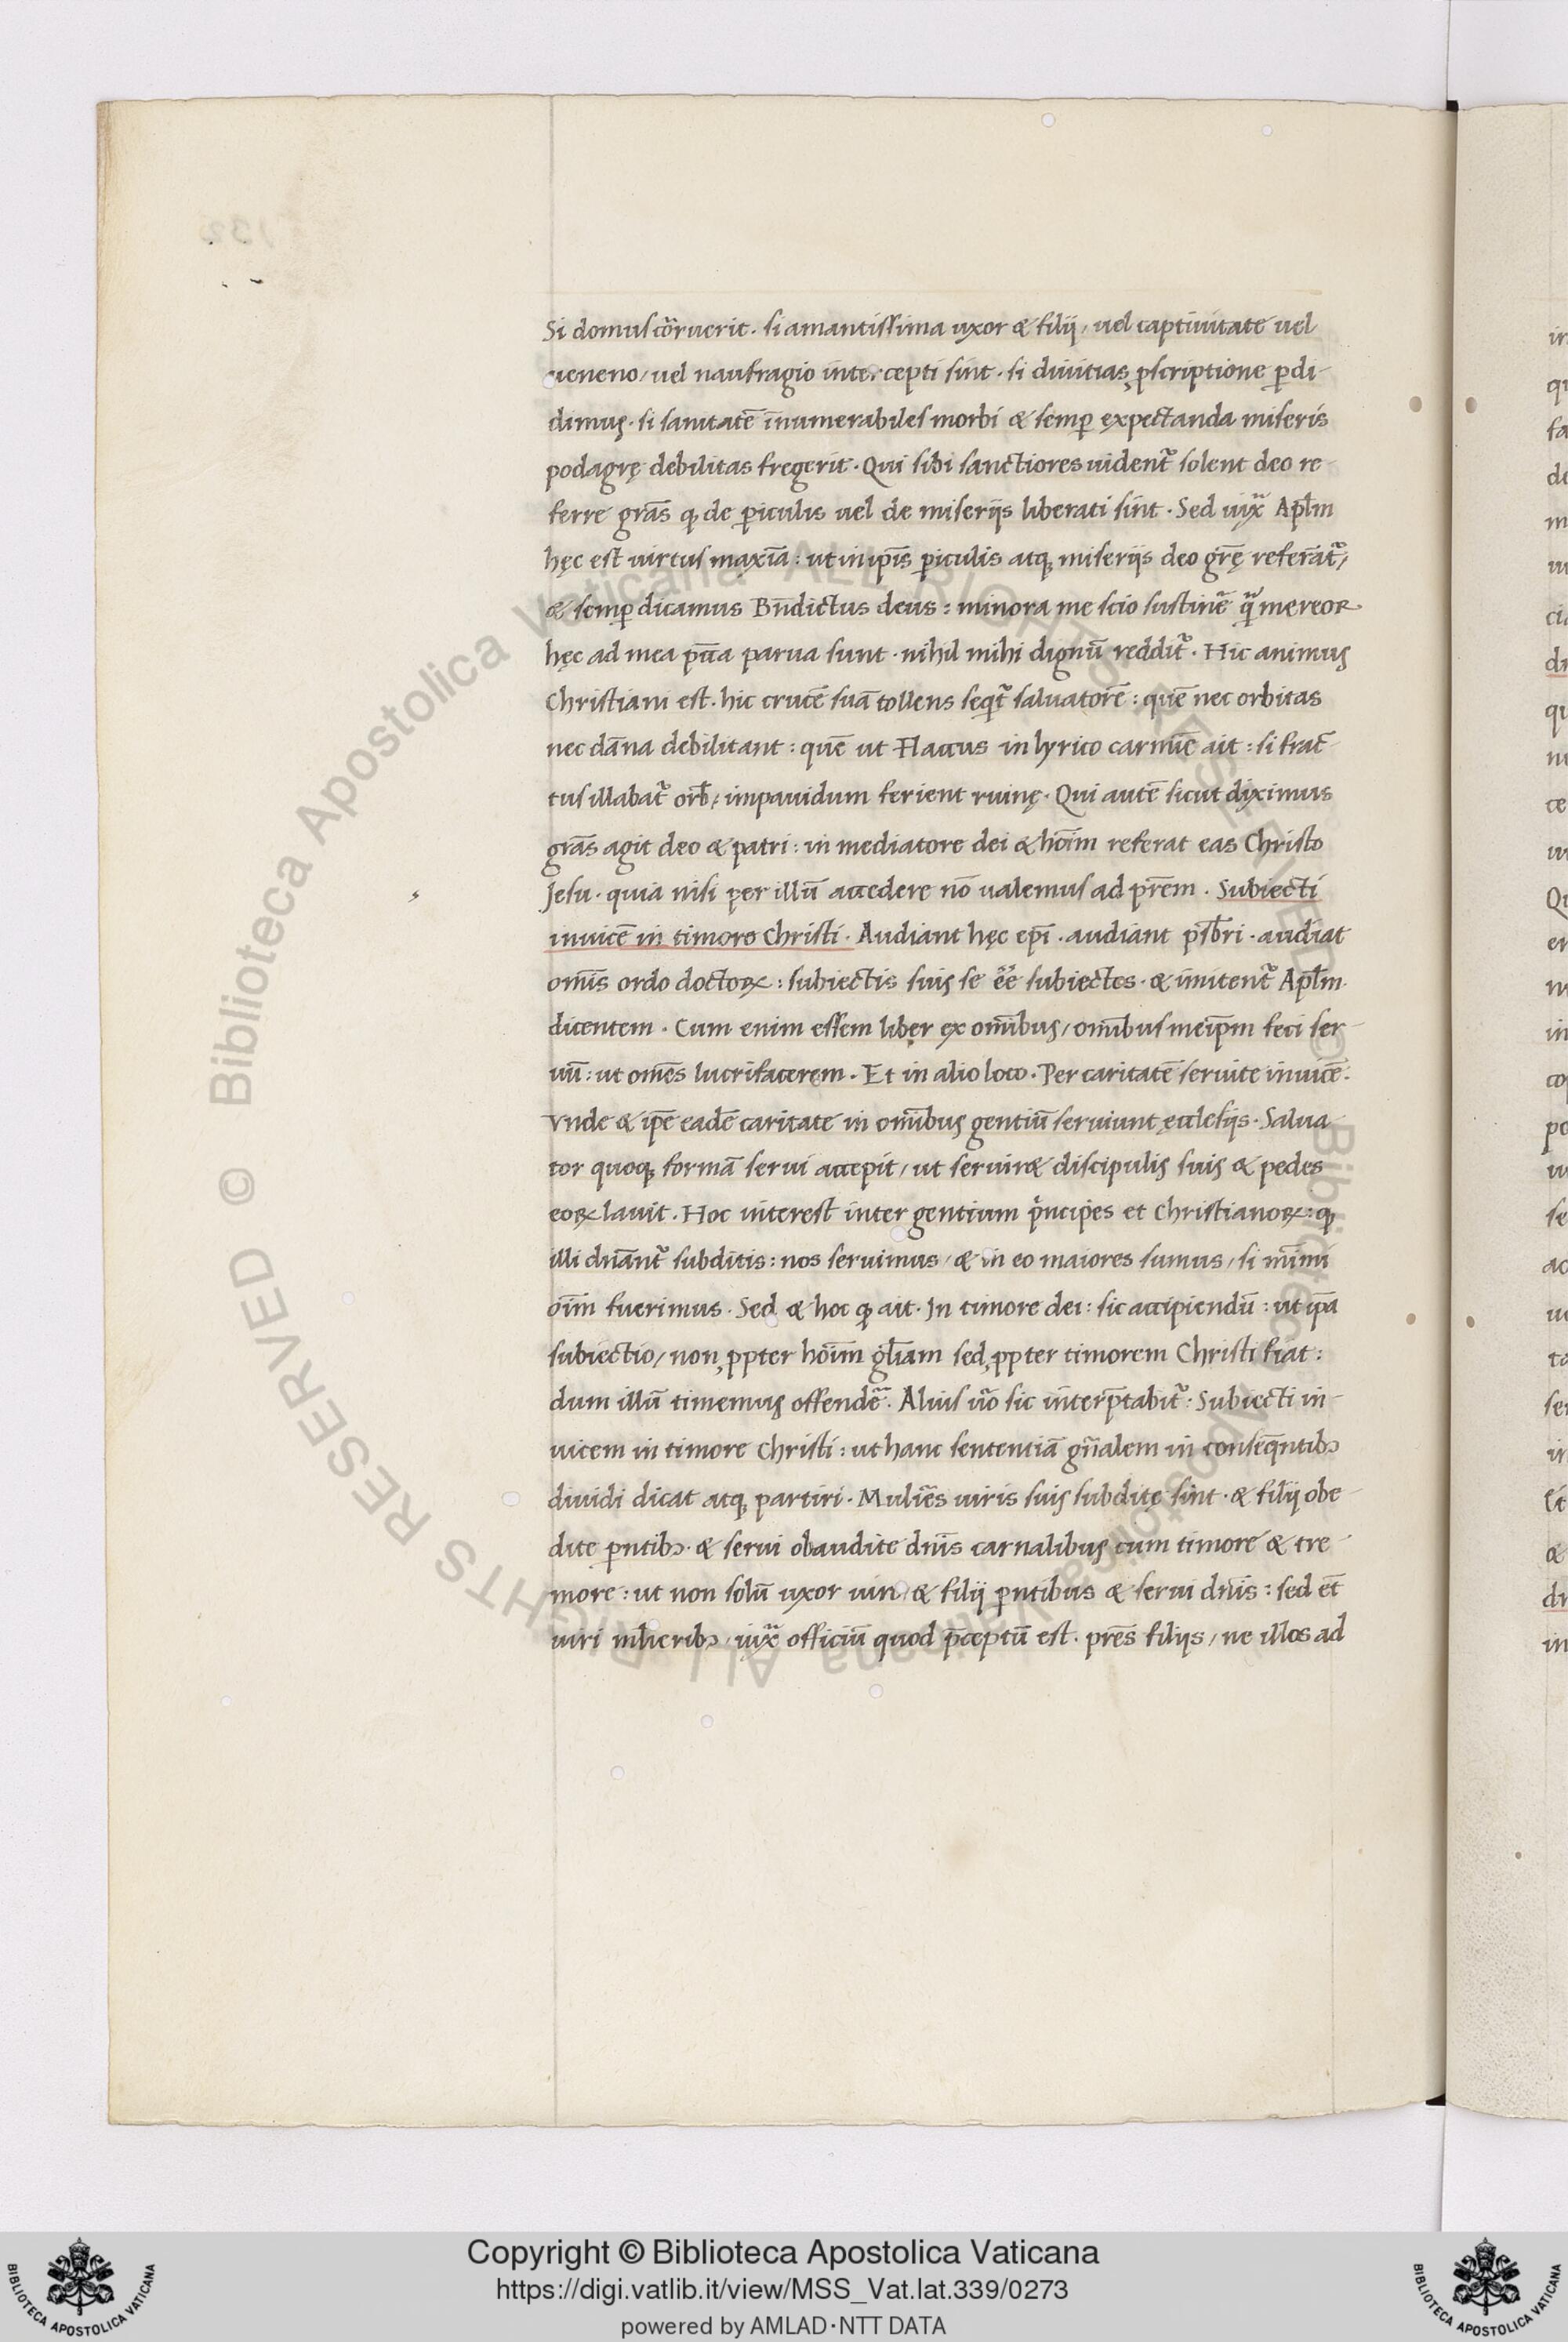 Si domus cōrruerit. si amantissima uxor & filij, uel captiuitate uel
ueneno, uel naufragio intercepti sint. si diuitias ꝓscriptione ꝑdi-
dimus. si sanitatē īnumerabiles morbi & semꝑ expectanda miseris
podagrę debilitas fregerit. Qui sibi sanctiores uident᷑ solent deo re-
ferre grās ꝙ de ꝑiculis uel de miserijs liberati sint. Sed iuxͣ Apl̄m
hęc est uirtus maxīa: ut in ip̄is ꝑiculis atqꝫ miserijs deo gr̄ę referāt᷑,
& semꝑ dicamus Bn̄dictus deus: minora me scio sustinē̄ qͣ̄ mereor
hęc ad mea pc̄c̄a parua sunt. nihil mihi dignū reddit᷑. Hic animus
Christiani est. hic crucē suā tollens seqͥt᷑ saluatorē: quē nec orbitas
nec dāna debilitant: quē ut Flaccus in lyrico carmīe ait: si frac-
tus illabat᷑ orb̄, impauidum ferient ruinę. Qui autē sicut diximus
grās agit deo & patri: in mediatore dei & hoīm referat eas Christo
Jesu. quia nisi per illū accedere nō ualemus ad pr̄em. Subiecti
inuicē in timore Christi. Audiant hęc epī. audiant psb̄ri. audiat
om̄is ordo doctoꝝ: subiectis suis se ēē subiectos. & imitent᷑ Apl̄m
dicentem. Cum enim essem liber ex om̄ibus, om̄ibus meip̄m feci ser-
uū: ut om̄es lucrifacerem. Et in alio loco. Per caritatē seruite inuicē.
Vnde & ip̄e eadē caritate in om̄ibus gentiū seruiunt ęcclesijs. Salua-
tor quoqꝫ formā serui accepit, ut seruir& discipulis suis & pedes
eoꝝ lauit. Hoc interest inter gentium pͥncipes et Christianoꝝ: ꝙ
illi dn̄ant᷑ subditis: nos seruimus, & in eo maiores sumus, si mīimi
oīm fuerimus. Sed & hoc ꝙ ait. In timore dei: sic accipiendū: ut ip̄a
subiectio, non ꝓpter hoīm gl̄iam sed ꝓpter timorem Christi fiat:
dum illū timemus offendē̄. Alius ūo sic interp̄tabit᷑: Subiecti in-
uicem in timore Christi: ut hanc sententiā gn̄alem in conseq̄ntibꝫ
diuidi dicat atqꝫ partiri. Mulīes uiris suis subditę sint. & filij obe-
dite ꝑntibꝫ. & serui obaudite dn̄is carnalibus cum timore & tre-
more: ut non solū uxor uiro, & filij ꝑntibus & serui dn̄is: sed et̄
uiri ml̄ieribꝫ, iuxͣ officiū quod p̄ceptū est. pr̄es filijs, ne illos ad
Copyright © Biblioteca Apostolica Vaticana
https://digi.vatlib.it/view/MSS_Vat.lat.339/0273
powered by AMLAD·NTT DATA